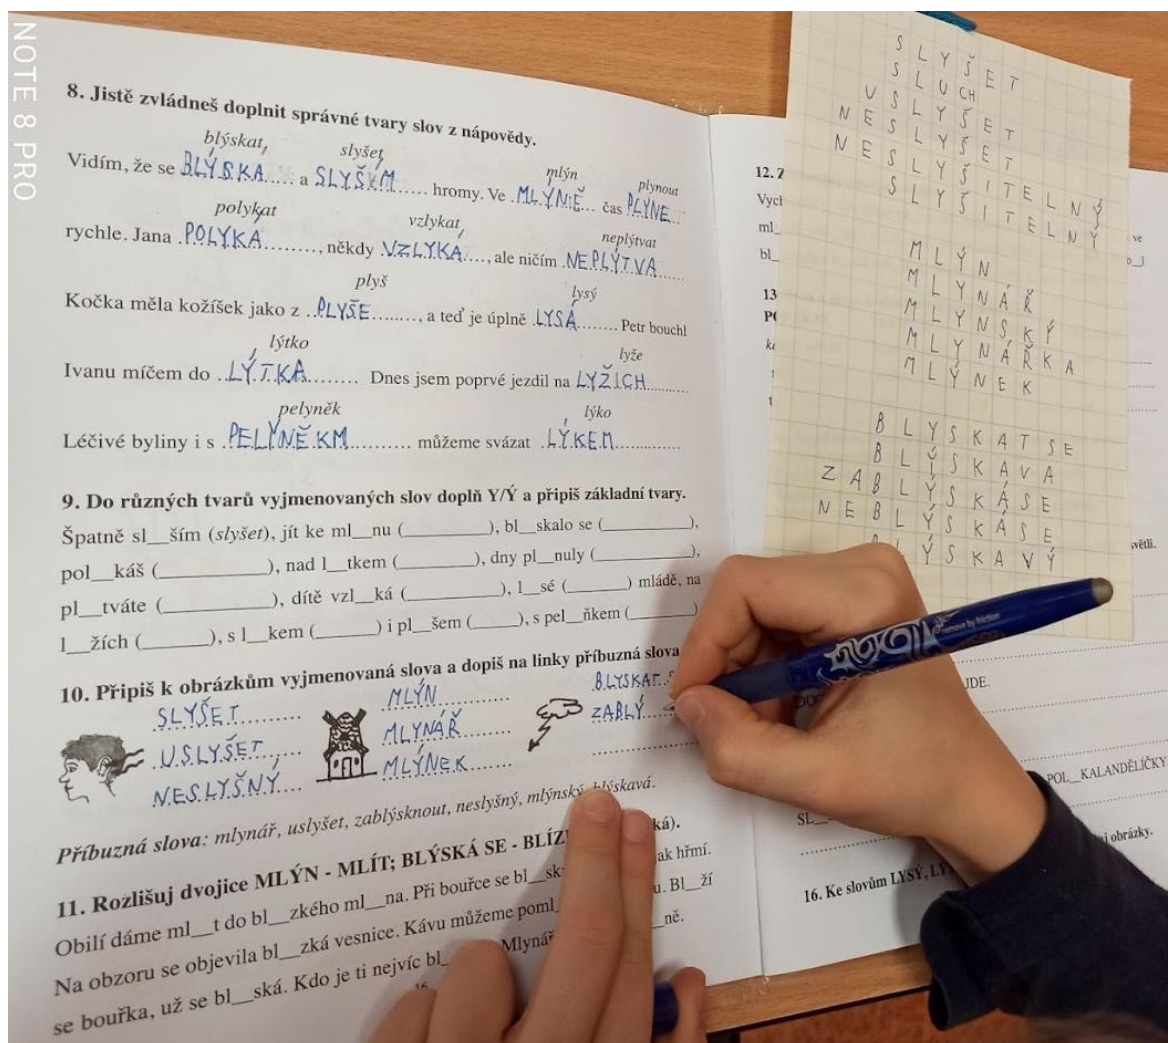 NOTE 8 PRO
8. Jistě zvládneš doplnit správné tvary slov z nápovědy.
blýskat, slyšet, mlýn plynout
Vidím, že se BLÝSKA a SLYŠÍM hromy. Ve MLÝNIĚ čas PLYNE
polykat vzlykat, neplýtvat
rychle. Jana POLYKA, někdy VZLYKA, ale ničím NEPLÝTVA
plyš lysý
Kočka měla kožíšek jako z PLYŠE, a teď je úplně LYSÁ Petr bouchl
lýtko lyže
Ivanu míčem do LÝTKA Dnes jsem poprvé jezdil na LYŽICH
pelyněk lýko
Léčivé byliny i s PELYNĚKM můžeme svázat LÝKEM
9. Do různých tvarů vyjmenovaných slov doplň Y/Ý a připiš základní tvary.
Špatně sl__ším (slyšet), jít ke ml__nu (__________), bl__skalo se (__________),
pol__káš (__________), nad l__tkem (__________), dny pl__nuly (__________),
pl__tváte (__________), dítě vzl__ká (__________), l__sé (______) mládě, na
l__žích (_______), s l__kem (______) i pl__šem (_____), s pel__ňkem (_______)
10. Připiš k obrázkům vyjmenovaná slova a dopiš na linky příbuzná slova
SLYŠET MLÝN BLYSKAT
USLYŠET MLYNÁŘ ZABLÝ
NESLYŠNÝ MLÝNEK
Příbuzná slova: mlynář, uslyšet, zablýsknout, neslyšný, mlýnský, blýskavá.
11. Rozlišuj dvojice MLÝN - MLÍT; BLÝSKÁ SE - ká).
Obilí dáme ml__t do bl__zkého ml__na. Při bouřce se bl__sk ak hřmí.
Na obzoru se objevila bl__zká vesnice. Kávu můžeme poml u. Bl__ží
se bouřka, už se bl__ská. Kdo je ti nejvíc bl Mlynář ně.
16
SLYŠET
SLUCH
USLYŠET
NESLYŠET
NESLYŠITELNÝ
SLYŠITELNÝ
MLÝN
MLYNÁŘ
MLYNSKÝ
MLYNÁŘKA
MLÝNEK
BLYSKAT SE
BLÝSKAVA
ZABLÝSKÁSE
NEBLÝSKÁSE
BLÝSKAVÝ
12.
ml_
bl_
ve
13
světli.
JDE.
POL__KALANDĚLÍČKY
SL__
obrázky.
16. Ke slovům LYSÝ,